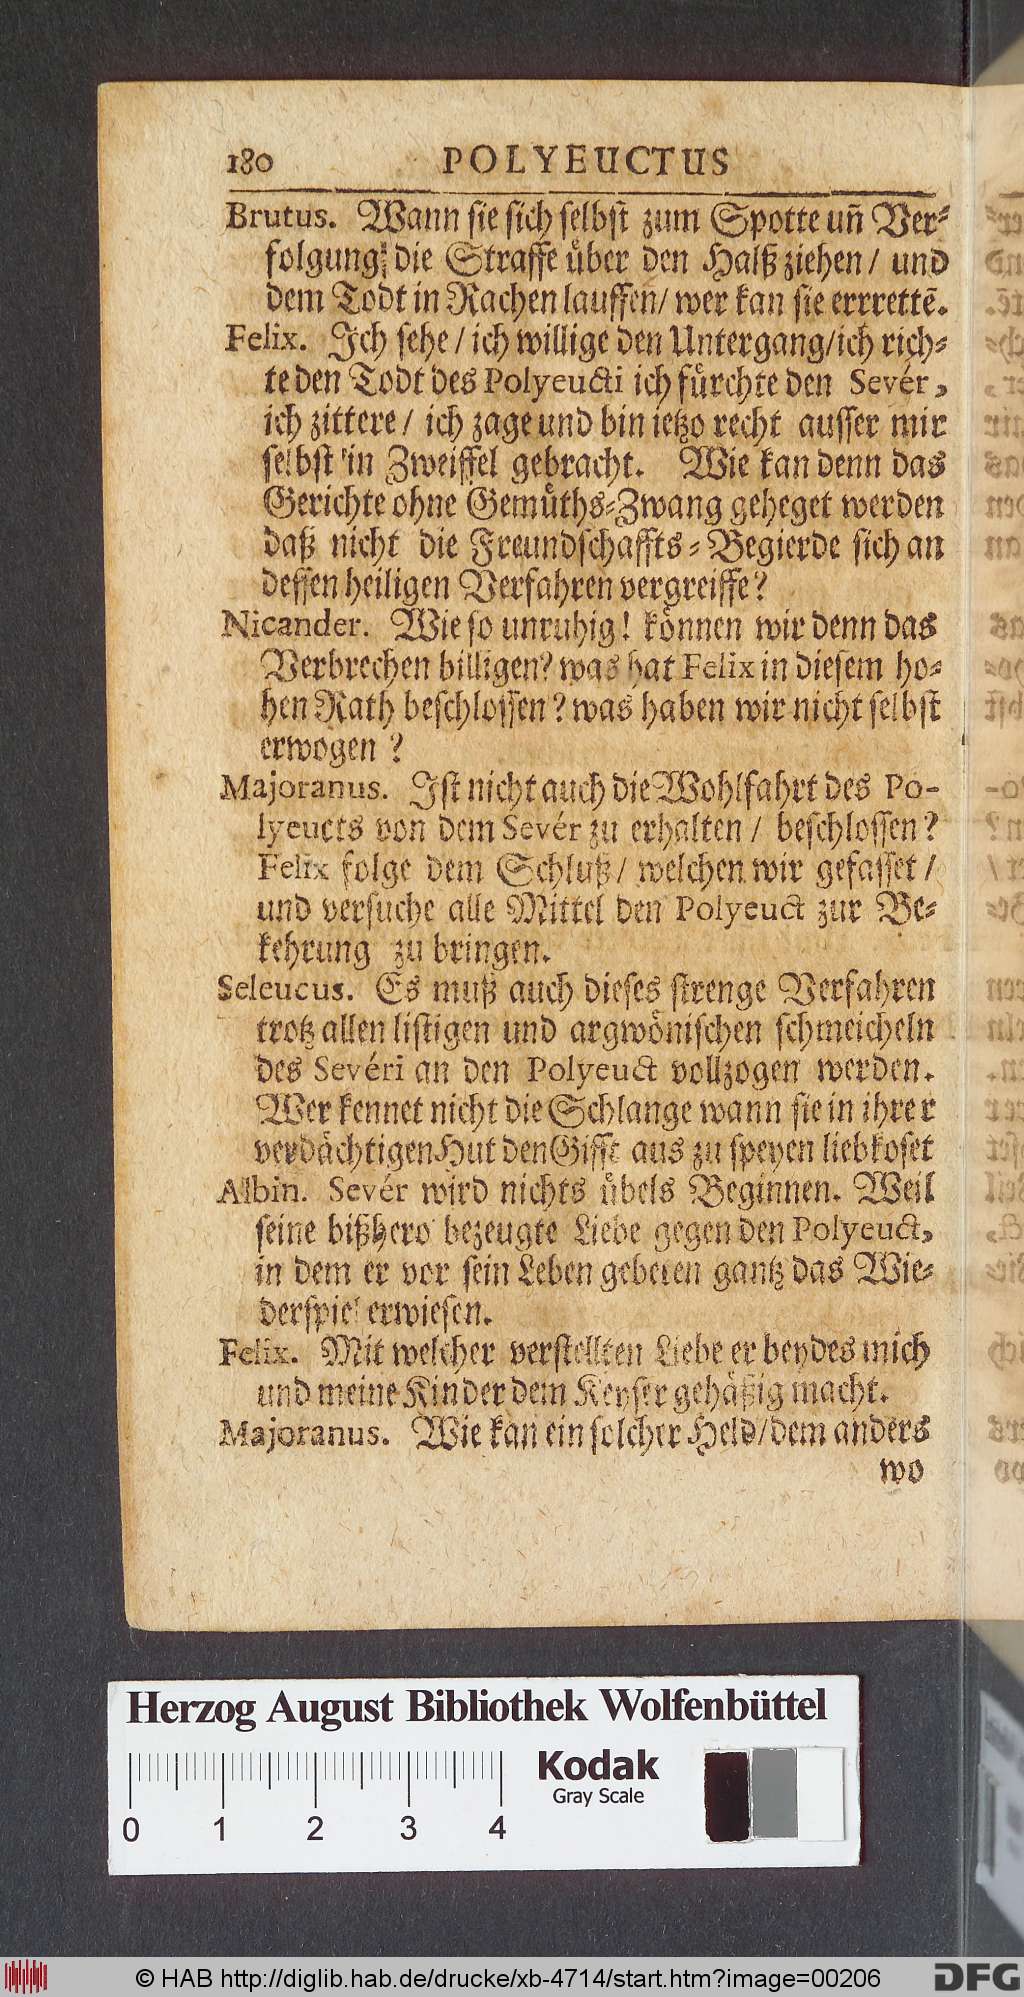 180 POLYEUCTUS
Brutus. Wann sie sich selbst zum Spotte uñ Ver⸗
folgung die Straffe über den Halß ziehen / und
dem Todt in Rachen lauffen / wer kan sie errrettẽ.
Felix. Ich sehe / ich willige den Untergang / ich rich⸗
te den Todt des Polyeucti ich fürchte den Sevér,
ich zittere / ich zage und bin ietzo recht ausser mir
selbst in Zweiffel gebracht. Wie kan denn das
Gerichte ohne Gemüths⸗Zwang geheget werden
daß nicht die Freundschaffts⸗Begierde sich an
dessen heiligen Verfahren vergreiffe?
Nicander. Wie so unruhig! können wir denn das
Verbrechen billigen? was hat Felix in diesem ho⸗
hen Rath beschlossen? was haben wir nicht selbst
erwogen?
Majoranus. Ist nicht auch die Wohlfahrt des Po-
lyeucts von dem Sevér zu erhalten / beschlossen?
Felix folge dem Schluß / welchen wir gefasset /
und versuche alle Mittel den Polyeuct zur Be⸗
kehrung zu bringen.
Seleucus. Es muß auch dieses strenge Verfahren
trotz allen listigen und argwönischen schmeicheln
des Sevéri an den Polyeuct vollzogen werden.
Wer kennet nicht die Schlange wann sie in ihrer
verdächtigen Hut den Gifft aus zu speyen liebkoset
Albin. Sevér wird nichts übels Beginnen. Weil
seine bißhero bezeugte Liebe gegen den Polyeuct,
in dem er vor sein Leben gebeten gantz das Wie⸗
derspiel erwiesen.
Felix. Mit welcher verstellten Liebe er beydes mich
und meine Kinder dem Keyser gehäßig macht.
Majoranus. Wie kan ein solcher Held / dem anders
wo
Herzog August Bibliothek Wolfenbüttel
Kodak
Gray Scale
0 1 2 3 4
© HAB http://diglib.hab.de/drucke/xb-4714/start.htm?image=00206
DFG